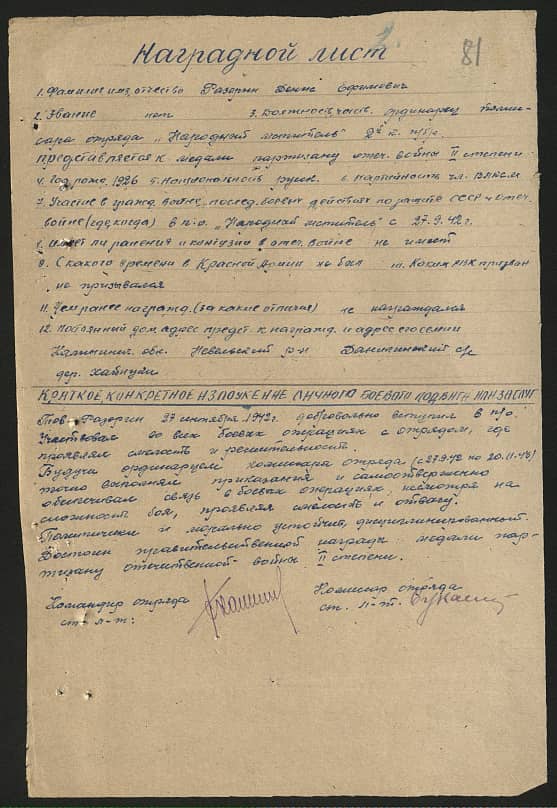 81
Наградной лист
1. Фамилия имя, отчество Разорин Денис Ефимович
2. Звание нет 3. Должность часть. ординарец комис-
сара отряда "Народный мститель" 2й к. пбр.
представляется к медали партизану отеч. войны II степени
4. Год рожд. 1926 5. Национальность русск. 6. партийность чл. ВЛКСМ
7. Участие в гражд. войне, послед. боевых действиях по защите СССР и отеч.
войне (где, когда) в п.о. "Народный мститель" с 27.9.42 г.
8. Имеет ли ранения и контузии в отеч. войне не имеет
9. С какого времени в Красной Армии не был 10. Каким РВК призван
не призывался
11. Чем ранее награжд. (за какие отличия) не награждался
12. Постоянный дом. адрес предст. к награжд. и адрес его семьи
Калининск. обл. Невельский р-н
дер.
Краткое, конкретное изложение личного боевого подвига или заслуг
Тов. 27 сентября 1942 г. добровольно вступил в п/о.
Участвовал во всех боевых операциях с отрядом, где
проявлял смелость и решительность.
Будучи ординарцем комиссара отряда (с 27.9.42 по 20.11.43)
точно выполнял приказания и самоотверженно
обеспечивал связь в боевых операциях, невзирая на
сложность боя, проявляя смелость и отвагу.
Политически и морально устойчив, дисциплинированный.
Достоин правительственной награды медали пар-
тизану отечественной войны II степени.
Командир отряда
ст. л-т:
Комиссар отряда
ст. л-т.